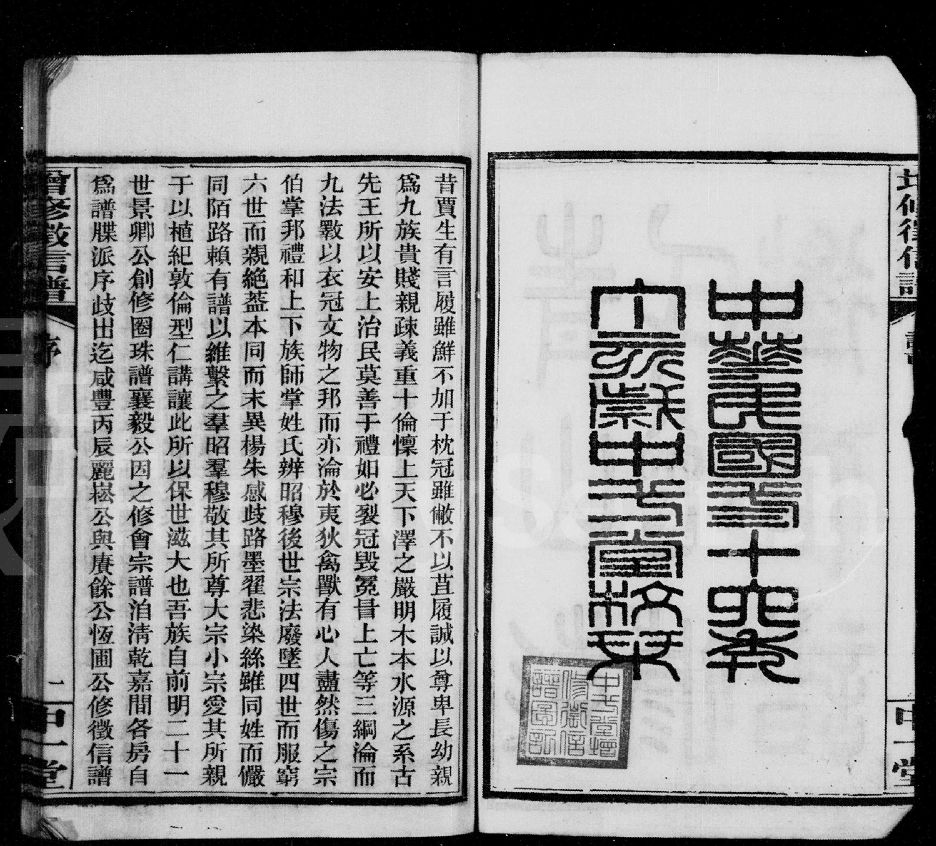 中華民國
十六年
中一堂
昔賈生有言履雖鮮不加于枕冠雖敝不以苴履誠以尊卑長幼親
爲九族貴賤親疎義重十倫懍上天下澤之嚴明木本水源之系古
先王所以安上治民莫善于禮如必裂冠毀冕冒上亡等三綱淪而
九法斁以衣冠文物之邦而亦淪於夷狄禽獸有心人盡然傷之宗
伯掌邦禮和上下族師掌姓氏辨昭穆後世宗法廢墜四世而服窮
六世而親絶葢本同而末異楊朱感歧路墨翟悲染絲雖同姓而儼
同陌路賴有譜以維繫之羣昭羣穆敬其所尊大宗小宗愛其所親
于以植紀敦倫型仁講讓此所以保世滋大也吾族自前明二十一
世景卿公創修圈珠譜襄毅公因之修會宗譜洎清乾嘉間各房自
爲譜牒派序歧出迄咸豐丙辰麗崧公與賡餘公恆圃公修徵信譜
增修徵信譜
序
一
中一堂